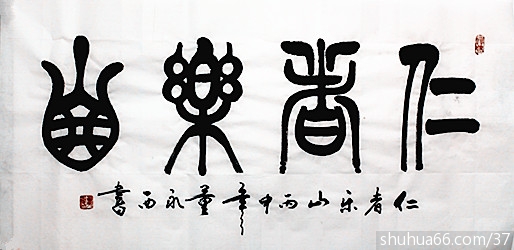 仁者樂山
仁者乐山丙申年董永西書
shuhua66.com/37